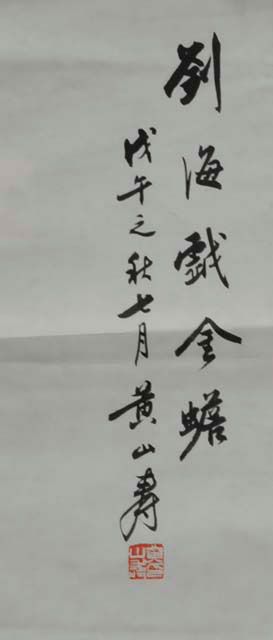 劉海戲金蟾
戊午之秋七月黃山壽